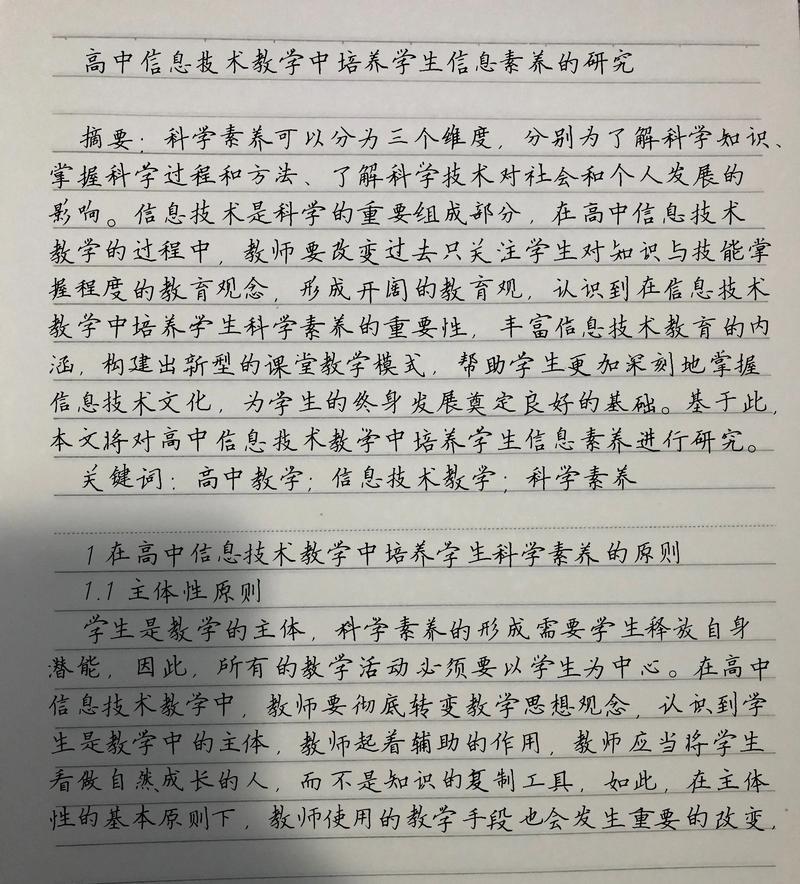 高中信息技术教学中培养学生信息素养的研究
摘要：科学素养可以分为三个维度，分别为了解科学知识、
掌握科学过程和方法、了解科学技术对社会和个人发展的
影响。信息技术是科学的重要组成部分，在高中信息技术
教学的过程中，教师要改变过去只关注学生对知识与技能掌
握程度的教育观念，形成开阔的教育观，认识到在信息技术
教学中培养学生科学素养的重要性，丰富信息技术教育的内
涵，构建出新型的课堂教学模式，帮助学生更加深刻地掌握
信息技术文化，为学生的终身发展奠定良好的基础。基于此，
本文将对高中信息技术教学中培养学生信息素养进行研究。
关键词：高中教学；信息技术教学；科学素养
1在高中信息技术教学中培养学生科学素养的原则
1.1主体性原则
学生是教学的主体，科学素养的形成需要学生释放自身
潜能，因此，所有的教学活动必须要以学生为中心。在高中
信息技术教学中，教师要彻底转变教学思想观念，认识到学
生是教学中的主体，教师起着辅助的作用，教师应当将学生
看做自然成长的人，而不是知识的复制工具，如此，在主体
性的基本原则下，教师使用的教学手段也会发生重要的改变，